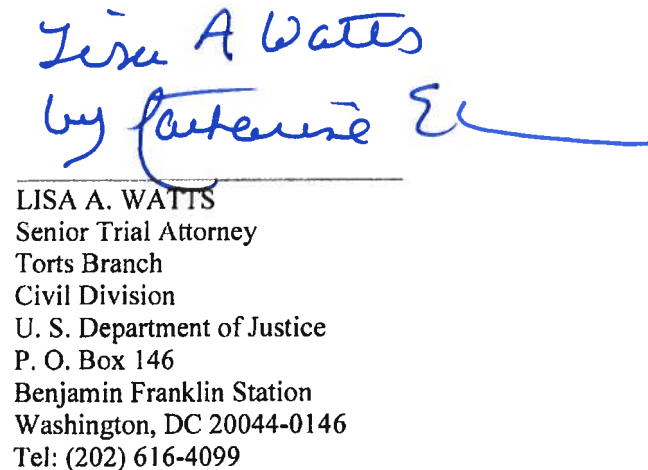 Lisa A Watts
by Catherine
LISA A. WATTS
Senior Trial Attorney
Torts Branch
Civil Division
U. S. Department of Justice
P. O. Box 146
Benjamin Franklin Station
Washington, DC 20044-0146
Tel: (202) 616-4099